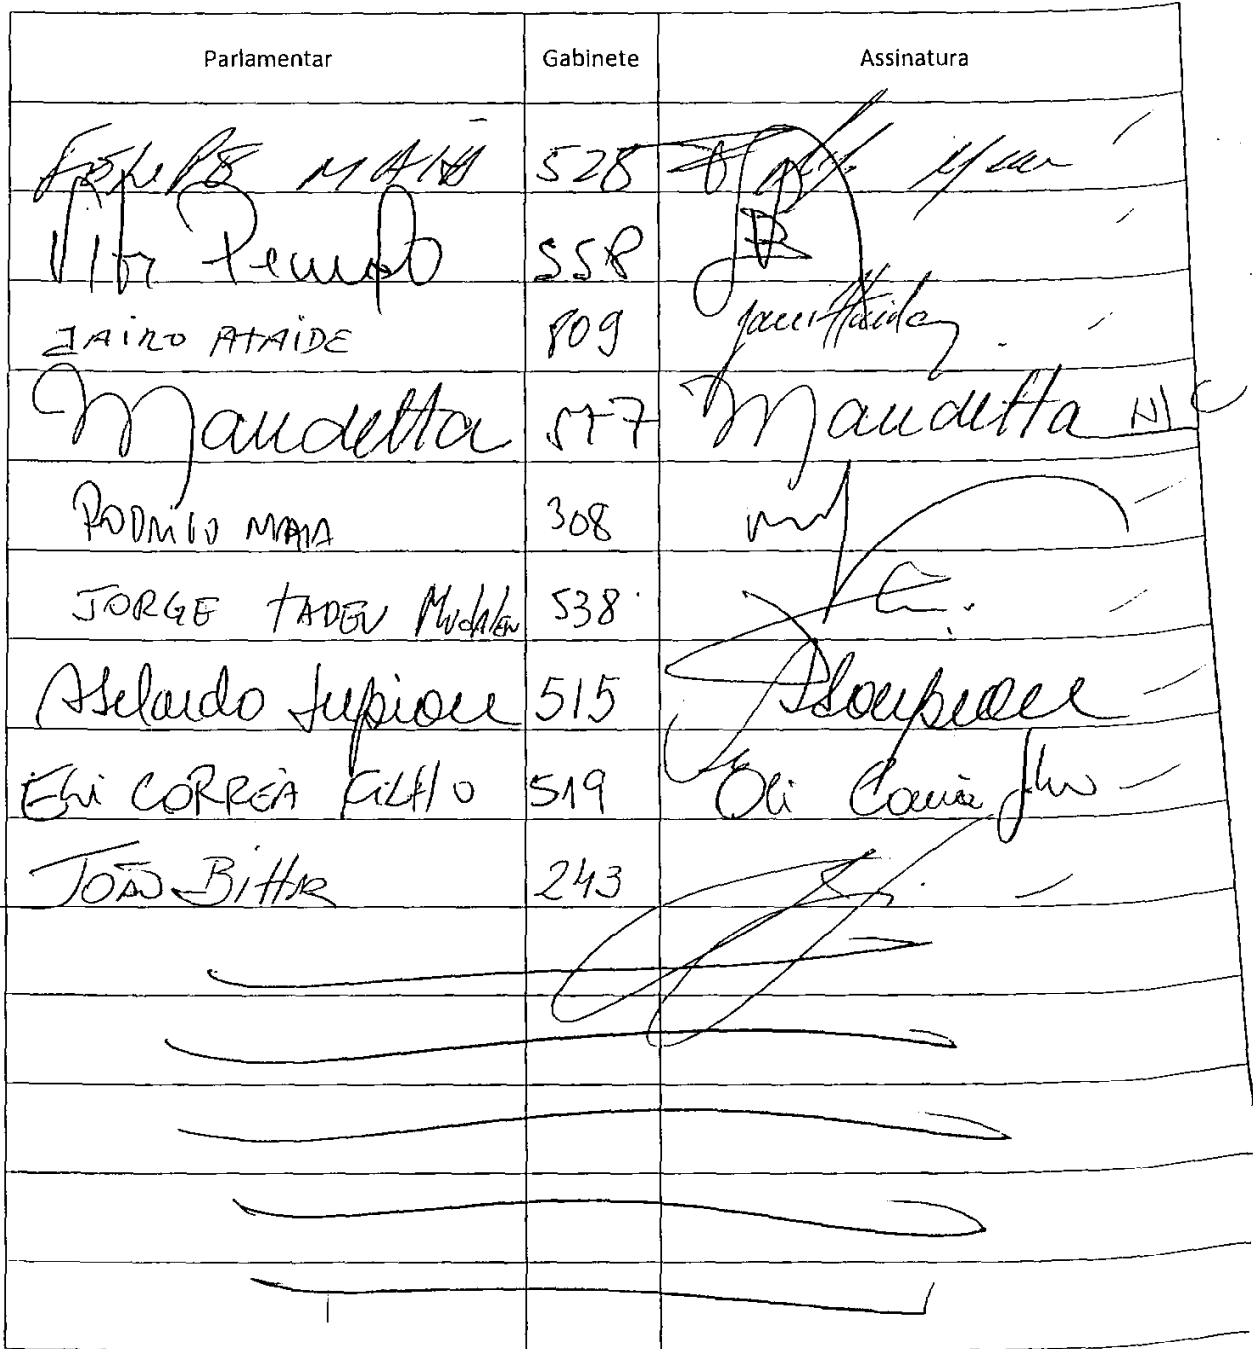 Parlamentar Gabinete Assinatura
FELIPE MAIA 528
Vitor Penido 558
JAIRO ATAIDE 809 Jairo Ataide
Mandetta 577 Mandetta N/C
RODRIGO MAIA 308
JORGE TADEU Mudalen 538
Abelardo Lupion 515 ALupion
Eli CORRÊA FILHO 519 Eli Corrêa Filho
JOÃO BITTAR 243